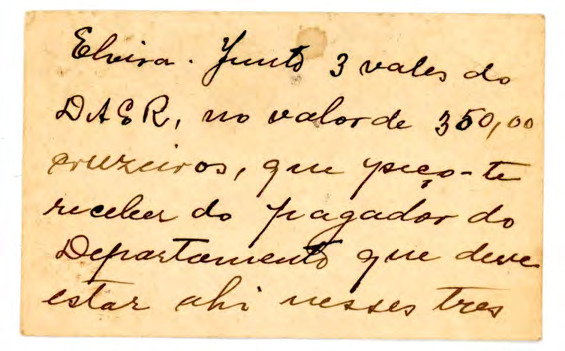 Elvira. Junto 3 vales do
DAER, no valor de 350,00
cruzeiros, que peço-te
receber do pagador do
Departamento que deve
estar ahi nesses tres